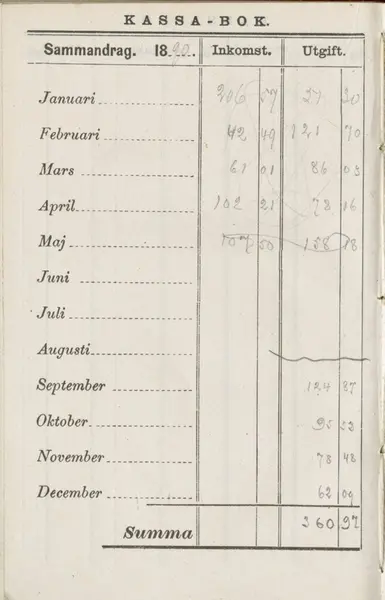 KASSA-BOK.
Sammandrag. 1890. Inkomst. Utgift.
Januari 206 59 27 30
Februari 42 49 121 70
Mars 61 01 86 03
April 102 21 78 16
Maj 107 50 158 18
Juni
Juli
Augusti
September 124 87
Oktober 95 53
November 78 48
December 62 09
Summa 360 97